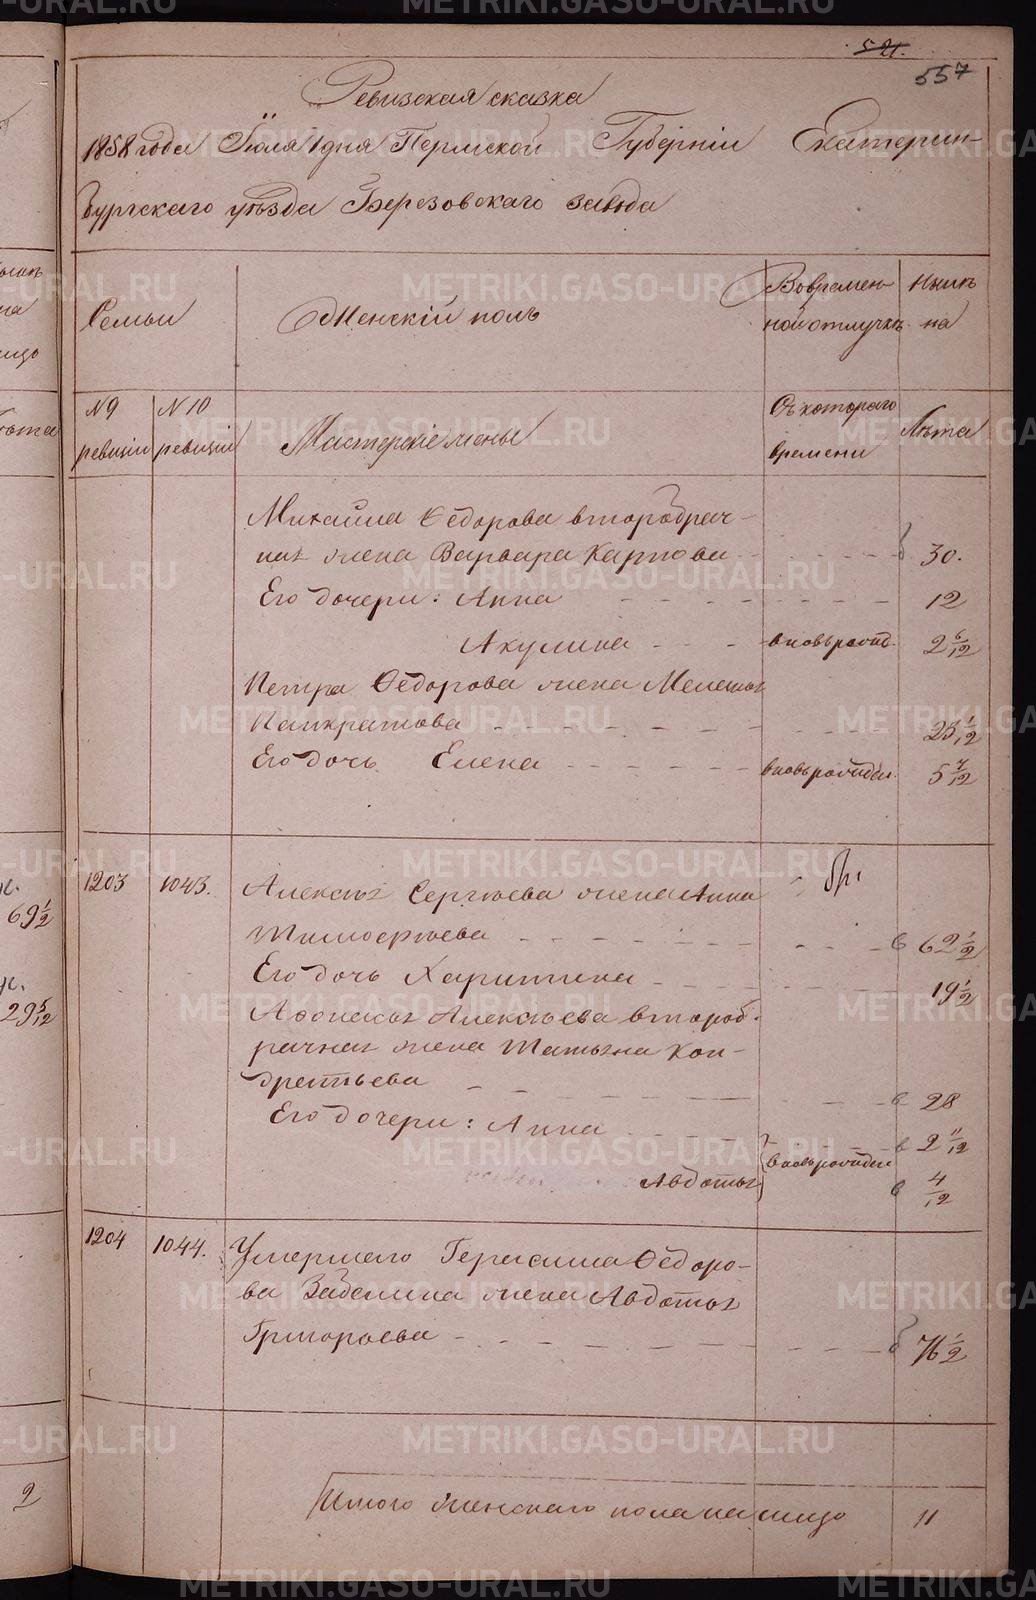 521.
557
Ревизская сказка
1858 года Июля 1 дня Пермской Губернiи Екатерин-
бургскаго уѣзда Березовскаго завода
Семьи
Женскiй полъ
Вовремен-
ной отлучкѣ
Нынѣ
на
лицо
№ 9
ревизiи
№ 10
ревизiи
Мастерскiе жены
Съ котораго
времени
Лѣта
Михайла Ѳедорова второбрач-
ная жена Варвара Карпова 30.
Его дочери: Анна 12
Акулина вновь рожд. 2 6/12
Петра Ѳедорова жена Меланья
Панкратова 25 1/12
Его дочь Елена вновь рожден. 5 7/12
1203 1043. Алексѣя Сергѣева жена Анна
Тимоѳеева 62 1/2
Его дочь Харитина 19 1/2
Аѳонасья Алексѣева второб-
рачная жена Татьяна Кон-
дратьева 28
Его дочери: Анна 2 11/12
вновь рожден
Авдотья 4/12
1204 1044. Умершаго Герасима Ѳедоро-
ва Забелина жена Авдотья
Григорьева 76 1/2
Итого женскаго пола на лицо 11
69 1/2
29 5/12
2
METRIKI.GASO-URAL.RU